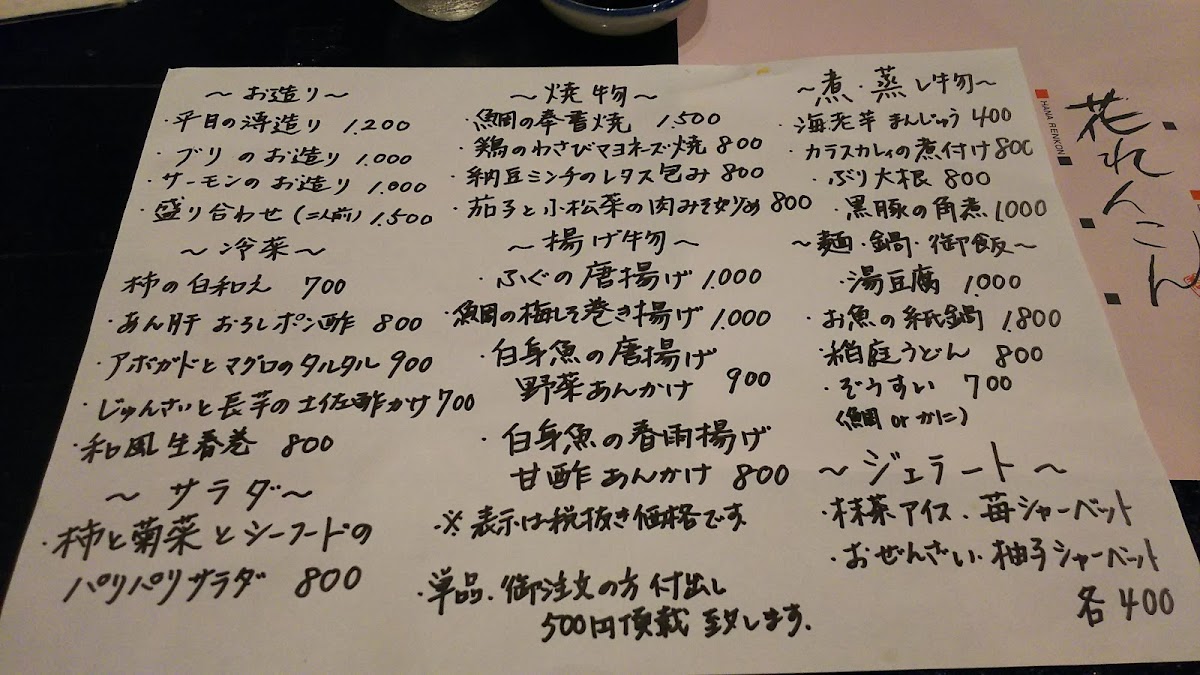 ～お造り～
・平目の薄造り 1.200
・ブリのお造り 1.000
・サーモンのお造り 1.000
・盛り合わせ(二人前) 1.500
～冷菜～
柿の白和え 700
・あん肝おろしポン酢 800
・アボガドとマグロのタルタル 900
・じゅんさいと長芋の土佐酢かけ 700
・和風生春巻 800
～サラダ～
・柿と菊菜とシーフードの
パリパリサラダ 800
～焼物～
・鯛の奉書焼 1.500
・鶏のわさびマヨネーズ焼 800
・納豆ミンチのレタス包み 800
・茄子と小松菜の肉みそ炒め 800
～揚げ物～
・ふぐの唐揚げ 1.000
・鯛の梅しそ巻き揚げ 1.000
・白身魚の唐揚げ
野菜あんかけ 900
・白身魚の春雨揚げ
甘酢あんかけ 800
・※表示は税抜き価格です
・単品・御注文の方付出し
500円頂戴致します.
～煮・蒸し物～
・海老芋まんじゅう 400
・カラスカレイの煮付け 800
・ぶり大根 800
・黒豚の角煮 1.000
～麺・鍋・御飯～
・湯豆腐 1.000
・お魚の紙鍋 1.800
・稲庭うどん 800
・ぞうすい 700
(鯛 or かに)
～ジェラート～
・抹茶アイス・苺シャーベット
・おぜんざい・柚子シャーベット
各400
HANA RENKON
花れんこん